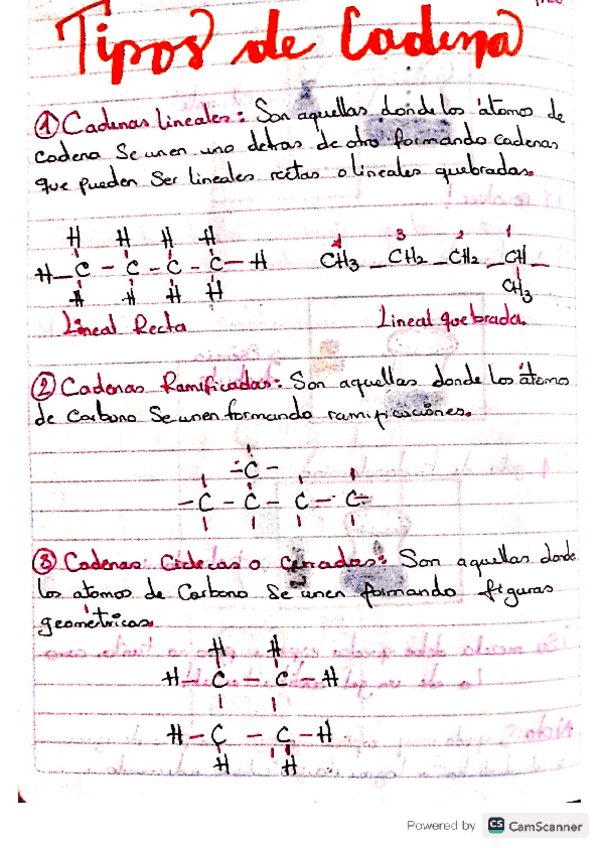 Tipos de Cadena
① Cadenas lineales: Son aquellas donde los átomos de
cadena Se unen uno detras de otro formando cadenas
que pueden Ser lineales rectas o lineales quebradas.
H H H H
H - C - C - C - C - H
H H H H
4 3 2 1
CH3 - CH2 - CH2 - CH -
CH3
Lineal Recta
Lineal quebrada.
② Cadenas Ramificadas: Son aquellas donde los átomos
de Carbono Se unen formando ramificaciónes.
- C -
- C - C - C - C -
③ Cadenas Ciclicas o Cerradas: Son aquellas donde
los atomos de Carbono Se unen formando figuras
geométricas.
H H
H - C - C - H
H - C - C - H
H H
Powered by CS CamScanner